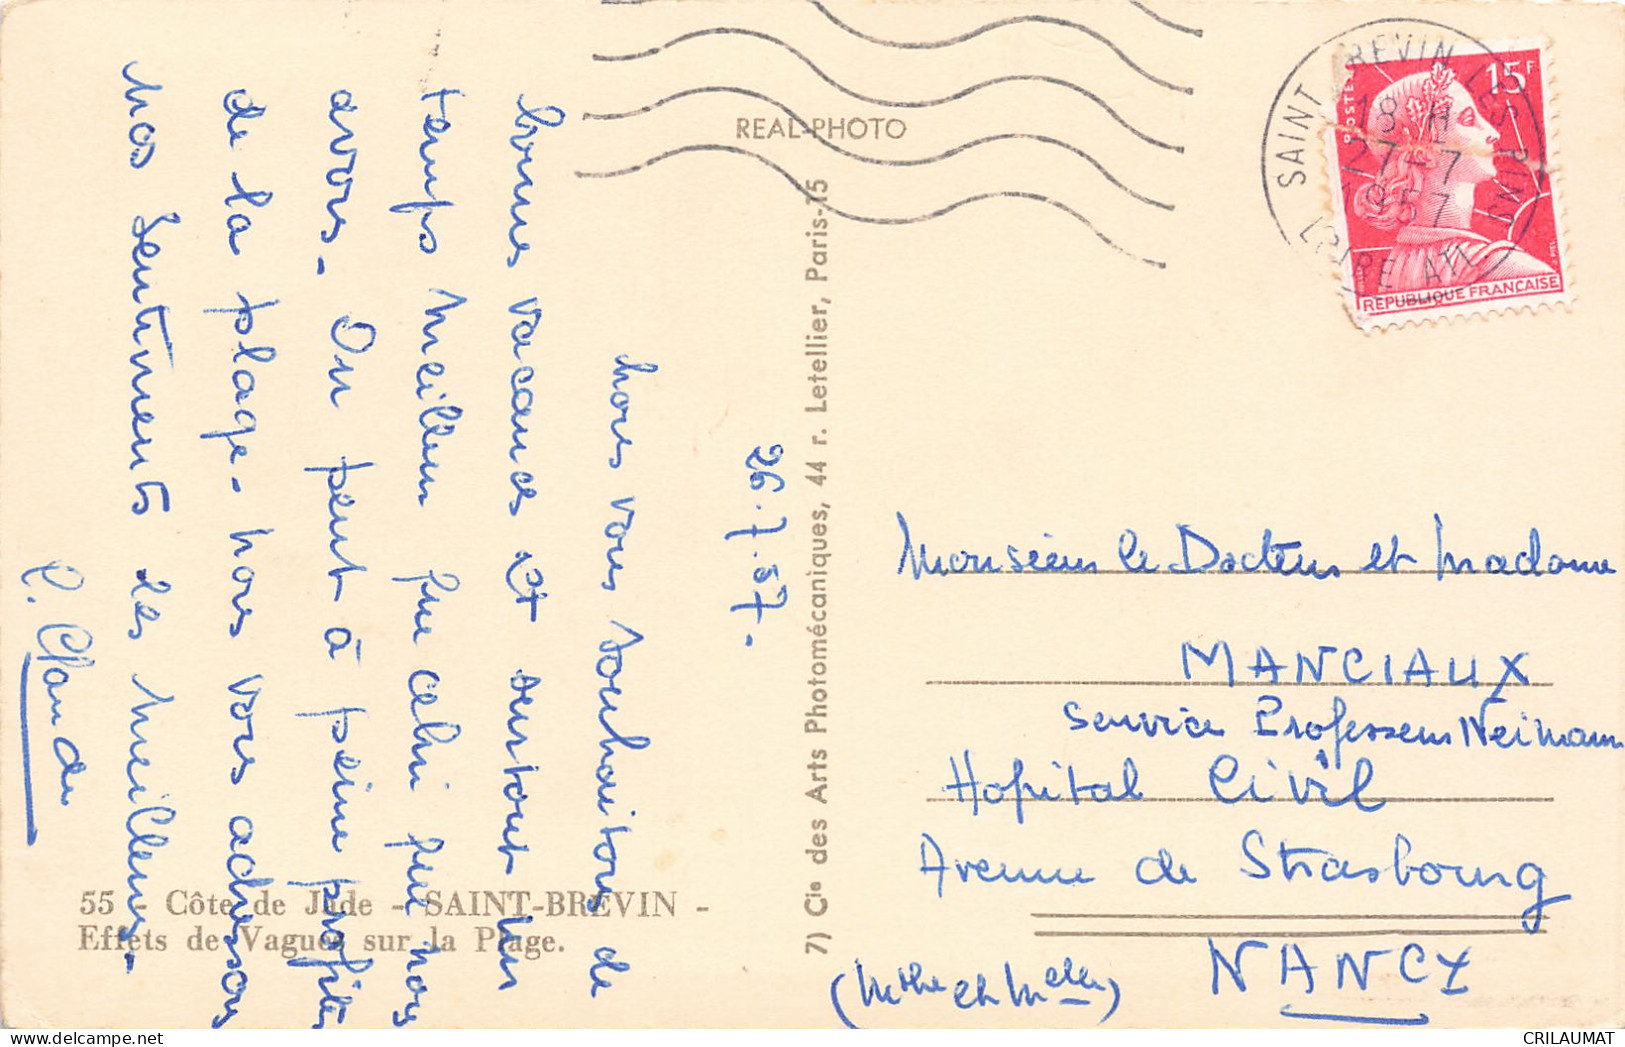 26.7.57.
Nous vous souhaitons de
bonnes vacances et surtout un
temps meilleur que celui que nous
avons. On peut à peine profiter
de la plage. Nous vous adressons
nos sentiments les meilleurs.
C. Claude
55 - Côte de Jade - SAINT-BREVIN -
Effets de Vagues sur la Plage.
REAL-PHOTO
7) Cie des Arts Photomécaniques, 44 r. Letellier, Paris-15
SAINT BREVIN LES PINS
18 H
27-7
1957
LOIRE ATL
POSTES
15F
REPUBLIQUE FRANÇAISE
Monsieur le Docteur et Madame
MANCIAUX
Service Professeur Neimann
Hopital Civil
Avenue de Strasbourg
NANCY
(Mthe et Melle)
CRILAUMAT